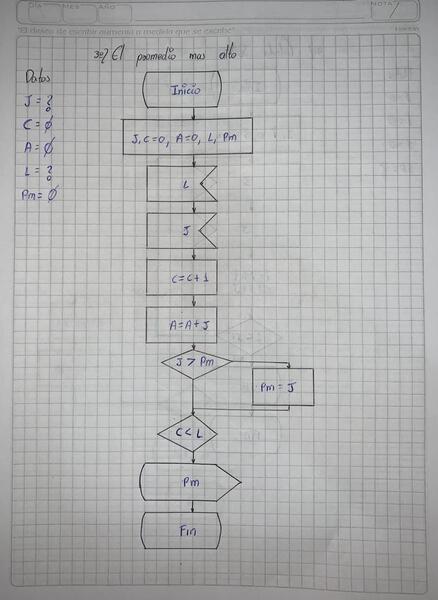 Día
MES
AÑO
NOTA
"El deseo de escribir aumenta a medida que se escribe"
30} El promedio mas alto
Datos
J = ?
C = Ø
A = Ø
L = ?
Pm = Ø
Inicio
J, C=0, A=0, L, Pm
L
J
C=C+1
A=A+J
J > Pm
Pm = J
C < L
Pm
Fin